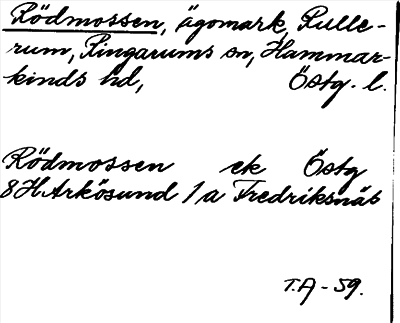 Rödmossen, ägomark, Rulle-
rum, Ringarums sn, Hammar-
kinds hd, Östg. l.
Rödmossen ek Östg
8H Arkösund 1a Fredriksnäs
T.A - 59.